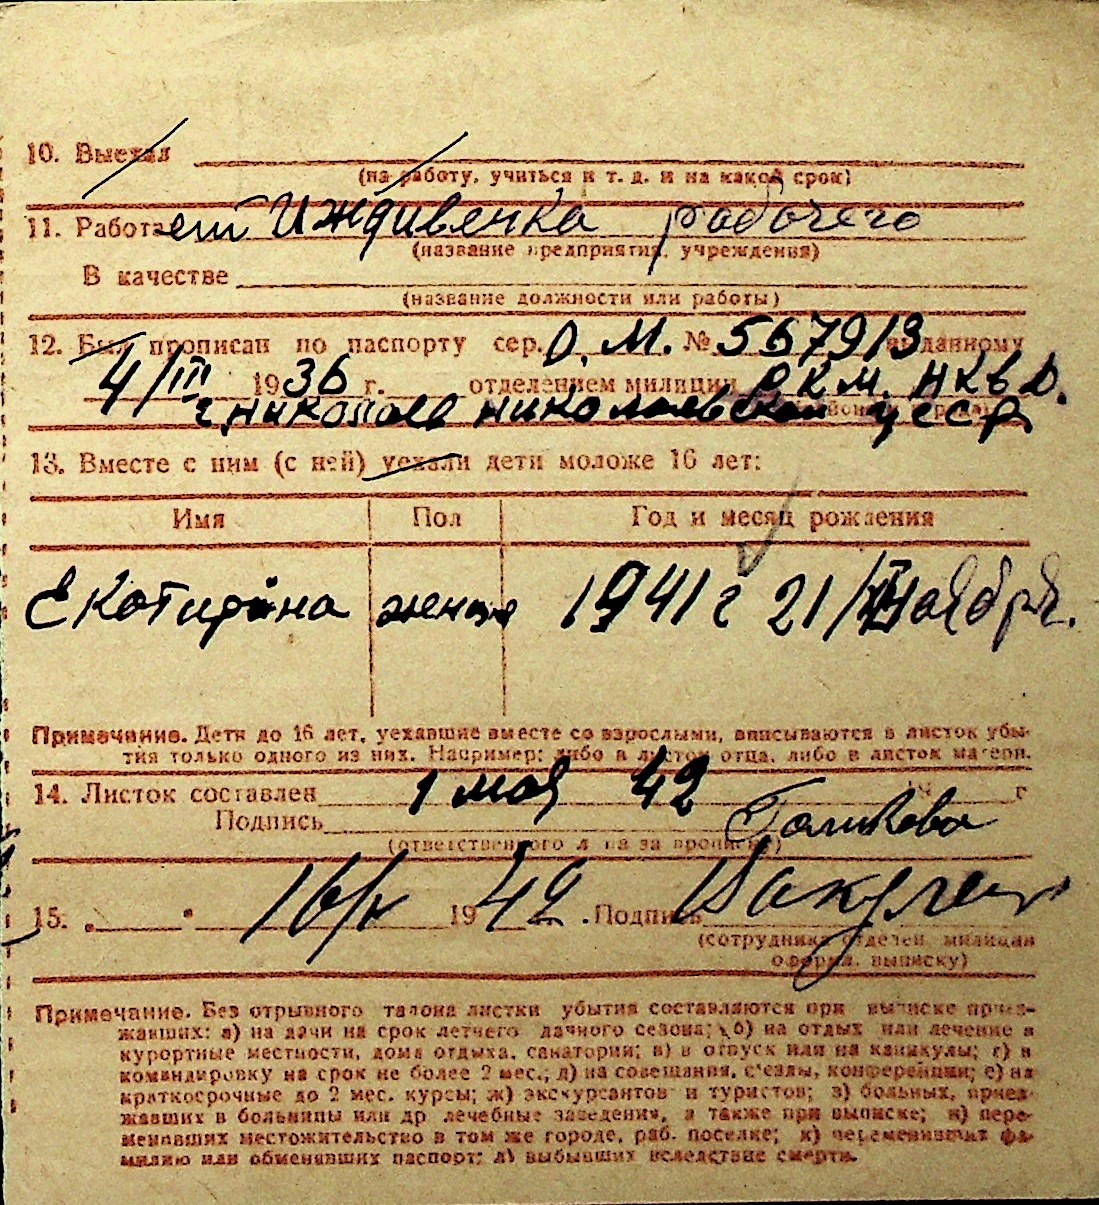 10. Выехал
(на работу, учиться и т. д. и на какой срок)
11. Работает Иждивенка рабочего
(название предприятия, учреждения)
В качестве
(название должности или работы)
12. Был прописан по паспорту сер. О. М. № 567913 выданному
4/III 1936 г. отделением милиции Р.К.М. НКВД.
г. Николаев Николаевской УССР
13. Вместе с ним (с ней) уехали дети моложе 16 лет:
Имя Пол Год и месяц рождения
Екатирина женск 1941 г 21/XI Ноября.
Примечание. Дети до 16 лет, уехавшие вместе со взрослыми, вписываются в листок убы-
тия только одного из них. Например: либо в листок отца, либо в листок матери.
14. Листок составлен 1 мая 42 г
Подпись Голикова
(ответственного лица за прописку)
15. " " 16/V 1942. Подпись
(сотрудника отделен. милиции
оформ. выписку)
Примечание. Без отрывного талона листки убытия составляются при выписке приез-
жавших: а) на дачи на срок летнего дачного сезона; б) на отдых или лечение в
курортные местности, дома отдыха, санатории; в) в отпуск или на каникулы; г) в
командировку на срок не более 2 мес.; д) на совещания, с'езды, конференции; е) на
краткосрочные до 2 мес. курсы; ж) экскурсантов и туристов; з) больных, приез-
жавших в больницы или др лечебные заведения, а также при выписке; и) пере-
менивших местожительство в том же городе, раб. поселке; к) переменивших фа-
милию или обменявших паспорт; л) выбывших вследствие смерти.